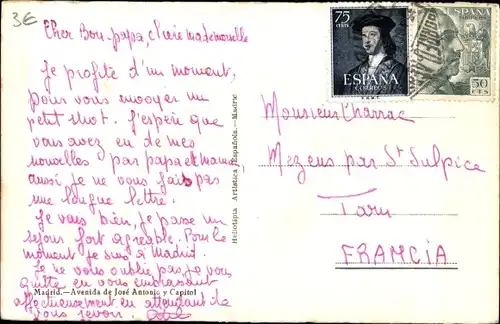 3€
Cher Bon-papa, chère mademoiselle
Je profite d'un moment,
pour vous envoyer un
petit mot. J'espère que
vous avez eu de mes
nouvelles par papa et maman,
aussi je ne vous fais pas
une longue lettre.
Je vais bien, je passe un
séjour fort agréable. Pour le
moment je suis à Madrid.
Je ne vous oublie pas, je vous
quitte en vous embrassant
affectueusement en attendant de
vous revoir.
Madrid.—Avenida de José Antonio y Capitol
Heliotipia Artística Española.—Madrid
75
CENTS
ESPAÑA
CORREOS
ESPAÑA
50
CTS
Monsieur Charrac
Mezens par St Sulpice
Tarn
FRANCIA